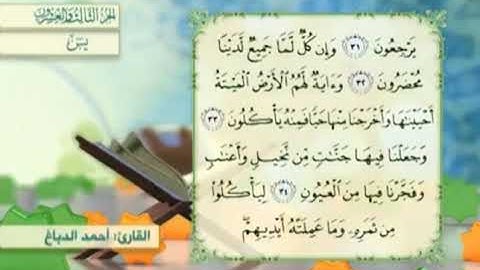 الجزء الثالث والعشرون
يسٓ
يَرْجِعُونَ ﴿٣١﴾ وَإِن كُلٌّ لَّمَّا جَمِيعٌ لَّدَيْنَا
مُحْضَرُونَ ﴿٣٢﴾ وَءَايَةٌ لَّهُمُ ٱلْأَرْضُ ٱلْمَيْتَةُ
أَحْيَيْنَٰهَا وَأَخْرَجْنَا مِنْهَا حَبًّا فَمِنْهُ يَأْكُلُونَ ﴿٣٣﴾
وَجَعَلْنَا فِيهَا جَنَّٰتٍ مِّن نَّخِيلٍ وَأَعْنَٰبٍ
وَفَجَّرْنَا فِيهَا مِنَ ٱلْعُيُونِ ﴿٣٤﴾ لِيَأْكُلُوا۟
مِن ثَمَرِهِۦ وَمَا عَمِلَتْهُ أَيْدِيهِمْ ۖ
القارئ: أحمد الدباغ